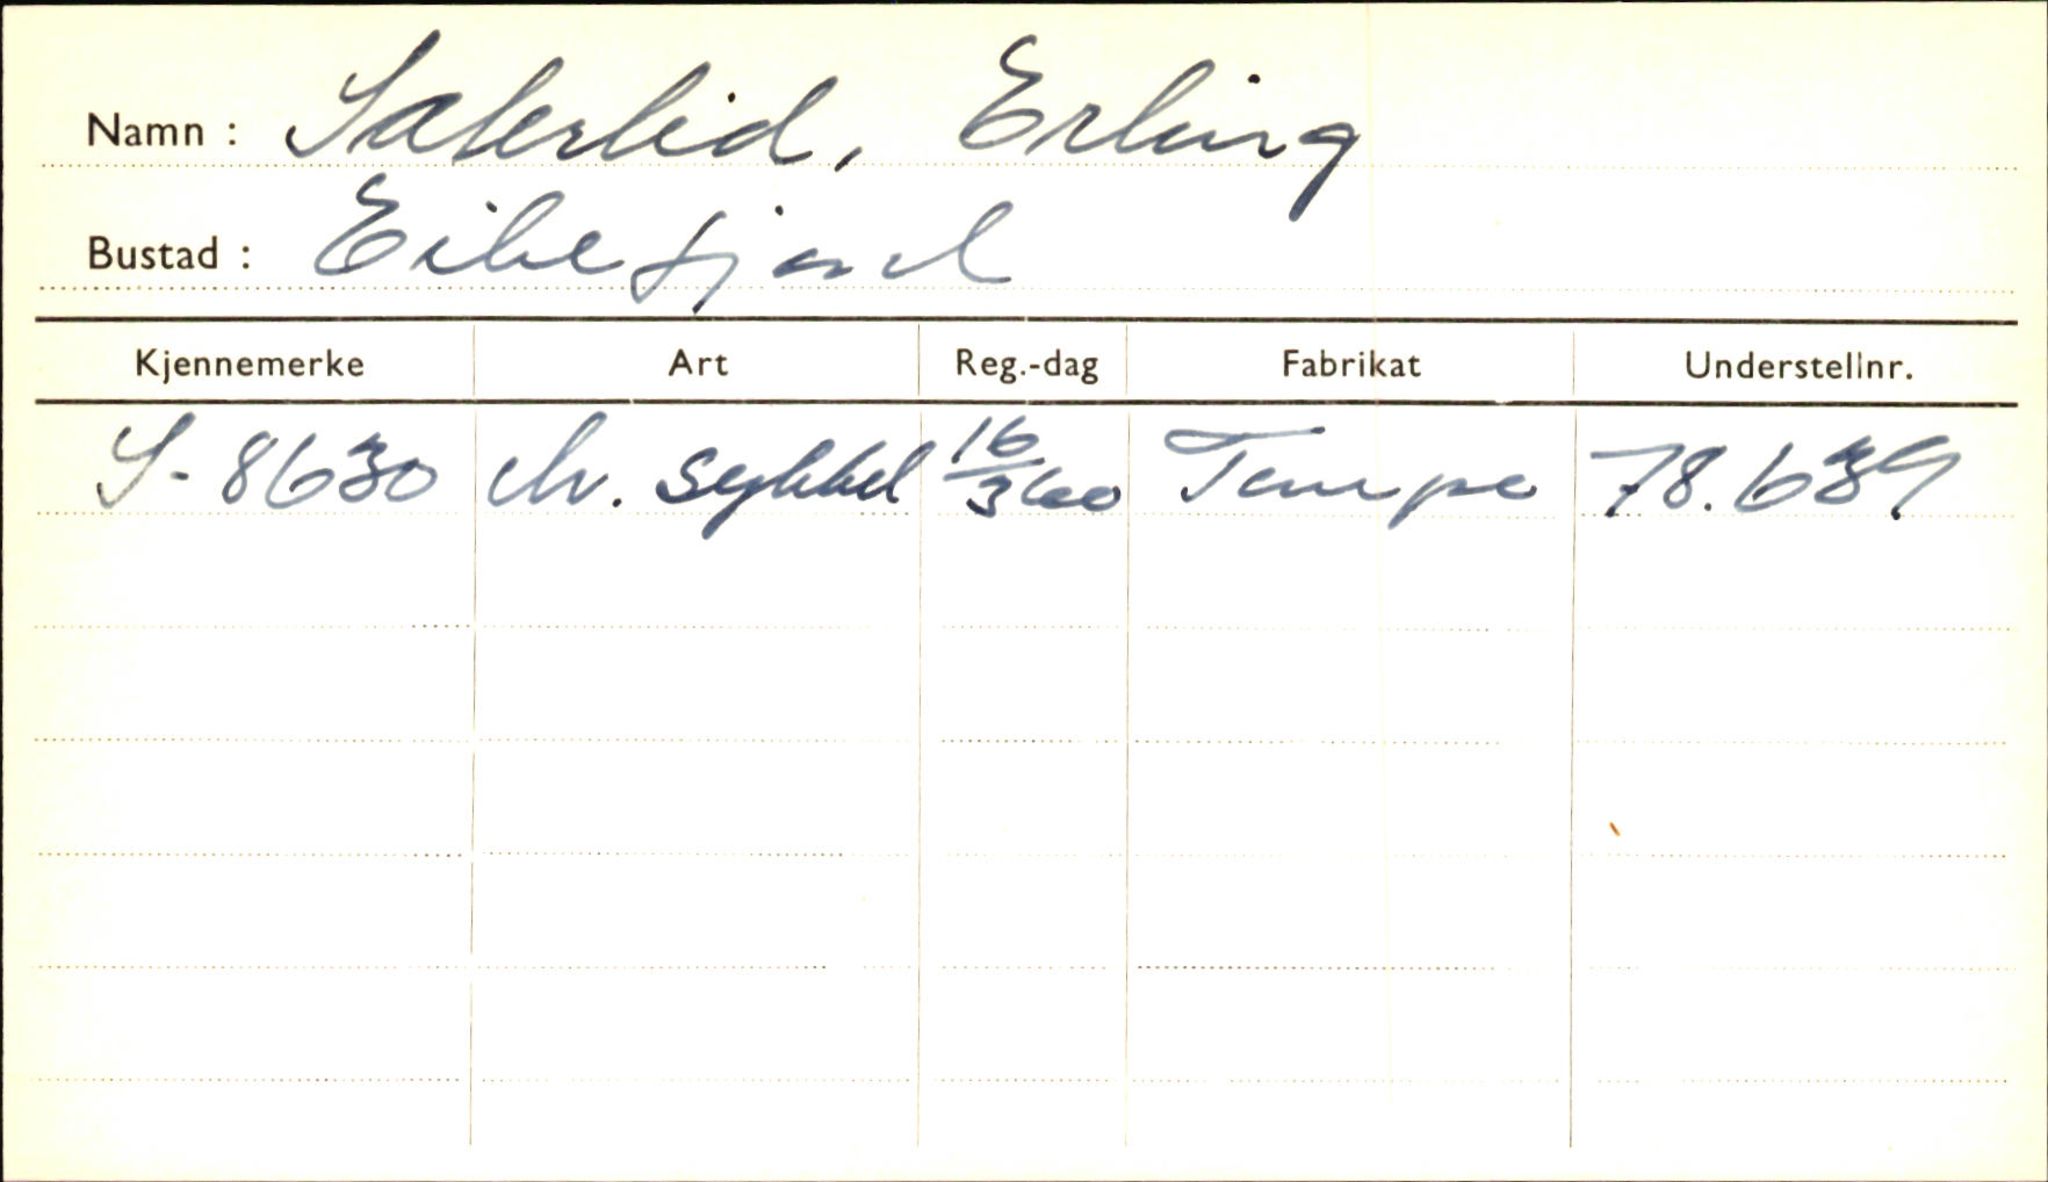 Namn : Sakerlid, Erling
Bustad : Eikefjord
Kjennemerke Art Reg.-dag Fabrikat Understellnr.
S-8630 M. sykkel 16/3 60 Tempo 78.639